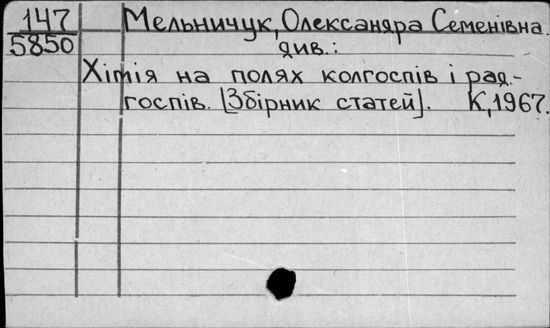 147 Мельничук, Олександра Семенівна.
5850 див.:
Хімія на полях колгоспів і рад-
госпів. [Збірник статей]. К, 1967.